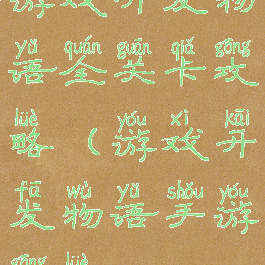 游戏开发物
yǔ quán guān qiǎ gōng
语全关卡攻
lüè yóu xì kāi
略（游戏开
fā wù yǔ shǒu yóu
发物语手游
gōng lüè